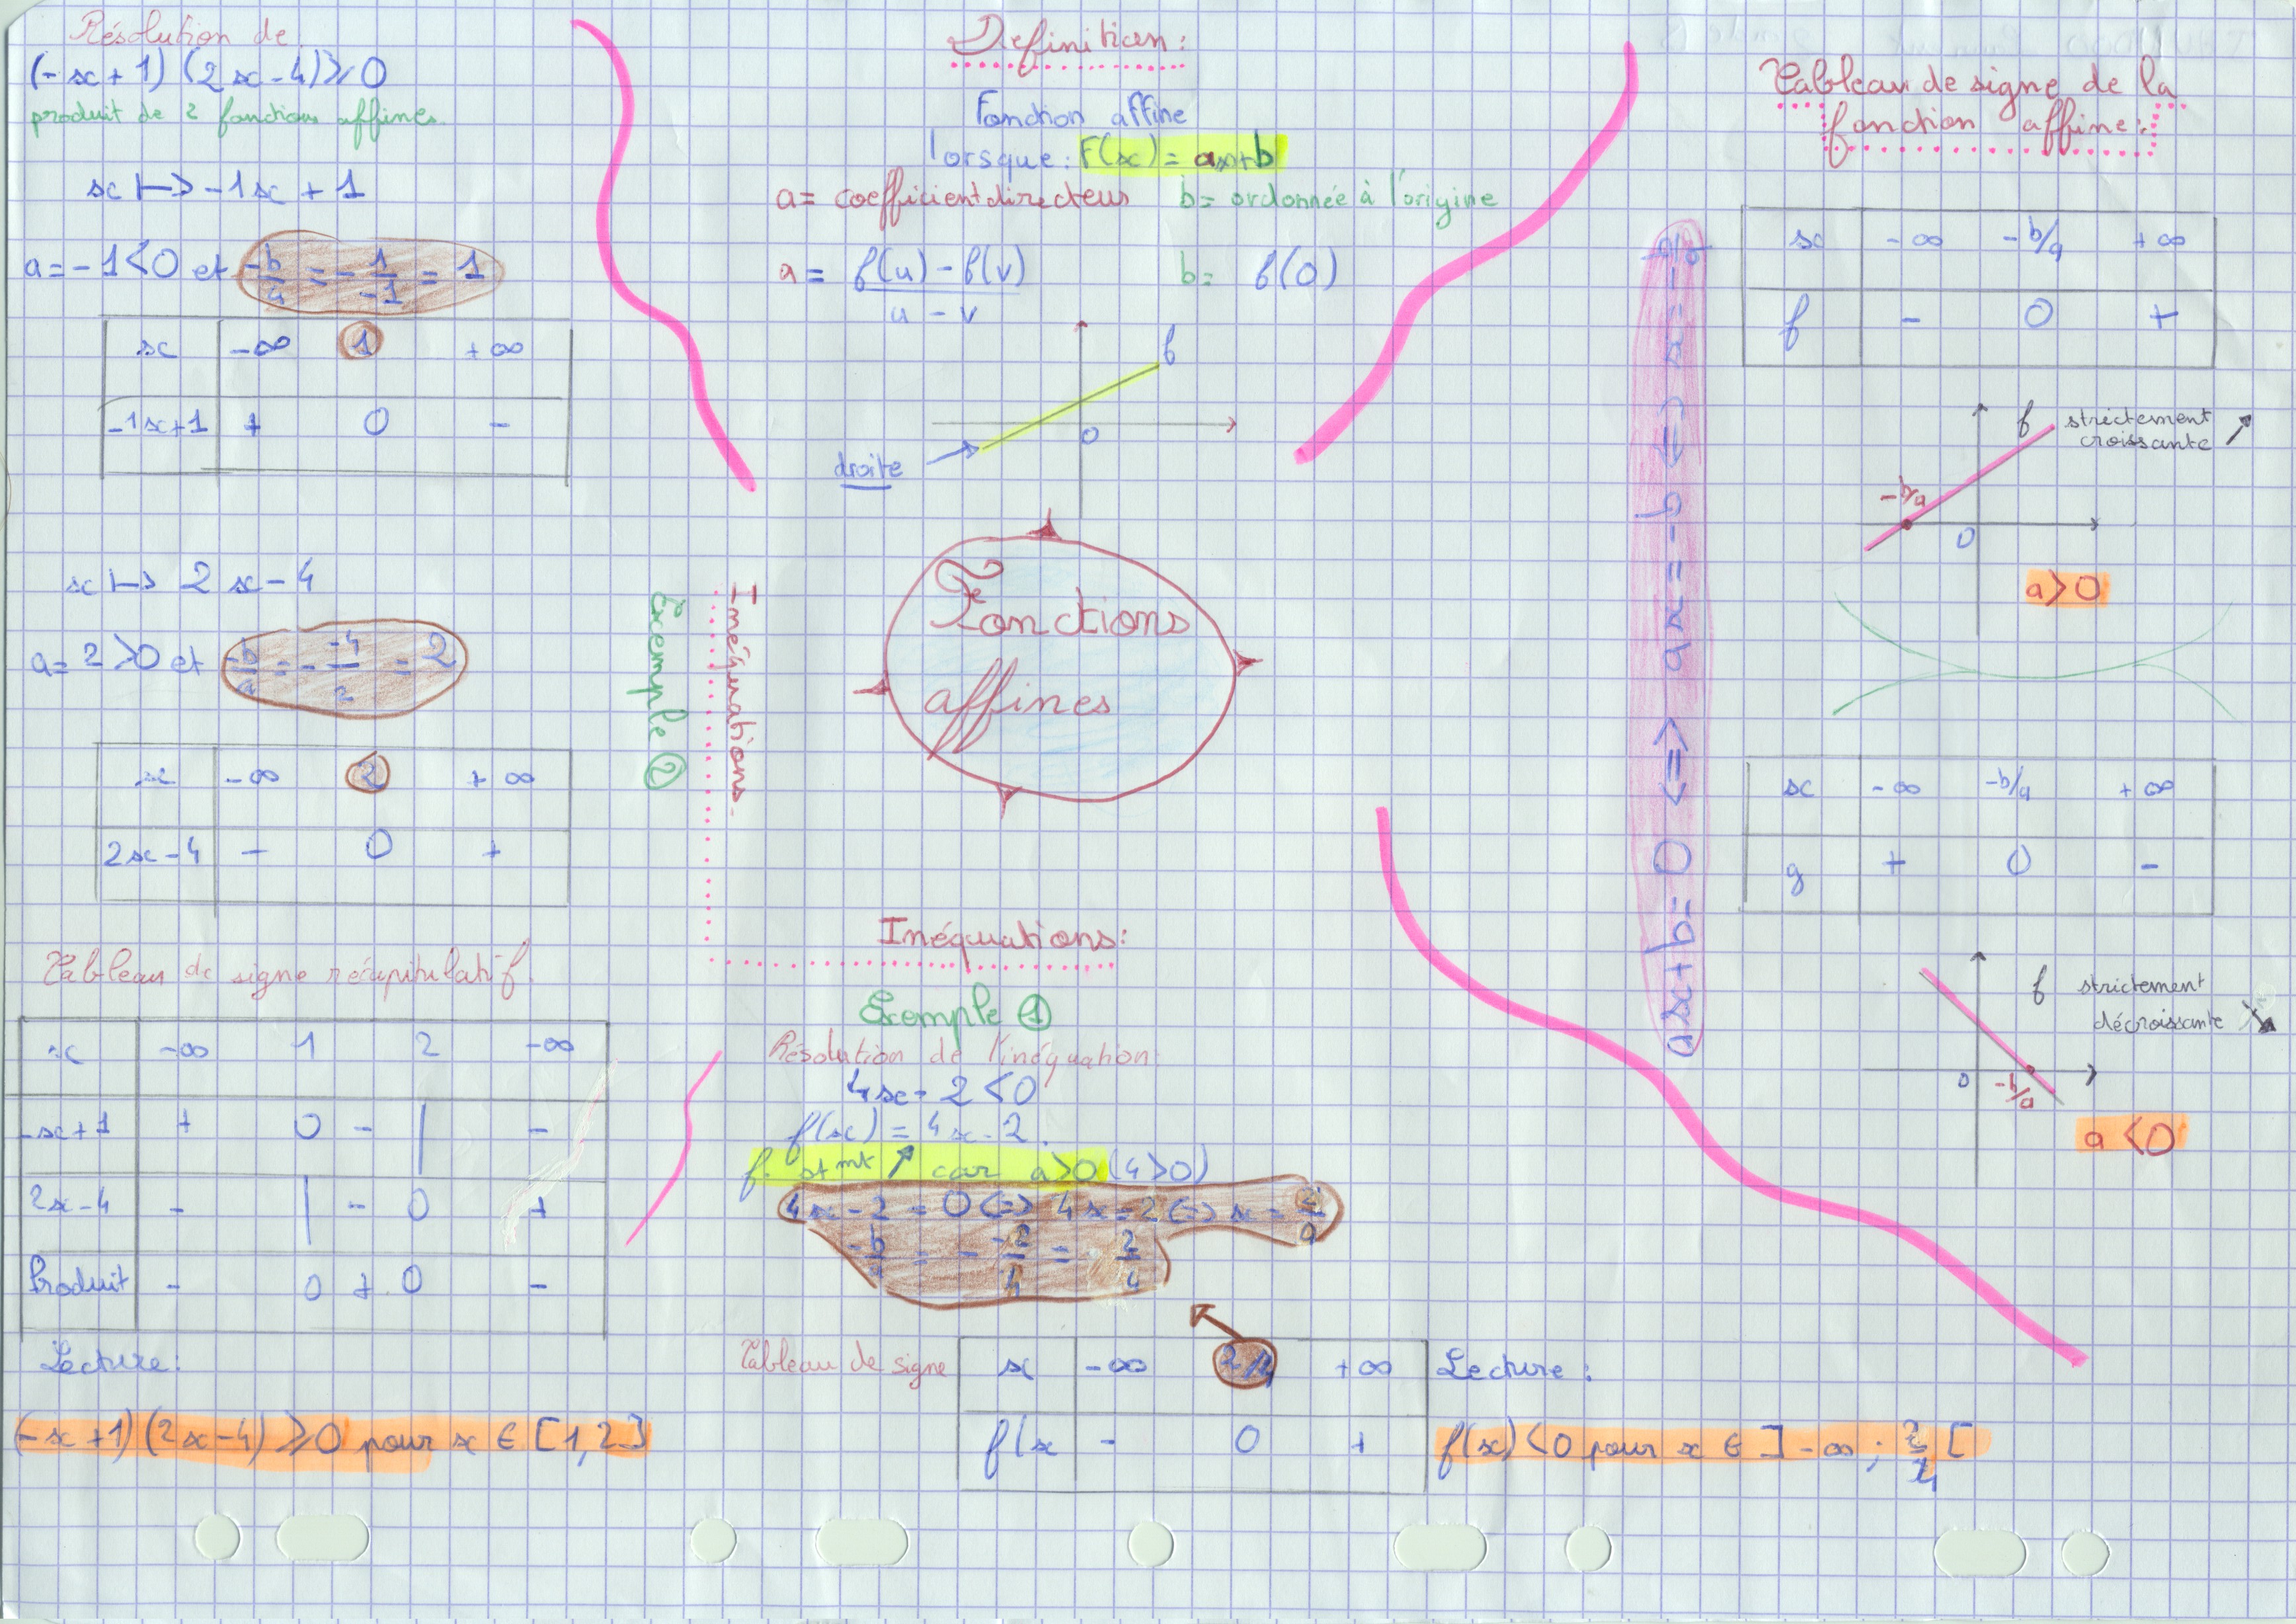 Résolution de
(-x+1) (2x-4)≥0
produit de 2 fonctions affines.
x ↦ -1x + 1
a=-1<0 et -b/a = -1/-1 = 1
x -∞ 1 +∞
-1x+1 + 0 -
x ↦ 2x-4
a= 2>0 et -b/a = - -4/2 = 2
x -∞ 2 +∞
2x-4 - 0 +
Tableau de signe récapitulatif.
x -∞ 1 2 -∞
-x+1 + 0 - | -
2x-4 - | - 0 +
Produit - 0 + 0 -
Lecture:
(-x+1)(2x-4) ≥0 pour x ∈ [1,2]
Definition:
Fonction affine
lorsque: F(x) = ax+b
a= coefficient directeur b= ordonnée à l'origine
a = f(u) - f(v) / u - v b= f(0)
f
0
droite
Fonctions
affines
Inéquations.
Exemple ②
Inéquations:
Exemple ①
Résolution de l'inéquation:
4x-2<0
f(x) = 4x-2.
f. stmt ↗ car a>0 (4>0)
4x-2 = 0 <=> 4x=2 <=> x =
-b/a = - -2/4 = 2/4
Tableau de signe
x -∞ 2/4 +∞
f(x - 0 +
Lecture:
f(x)<0 pour x ∈ ]-∞; 2/4 [
ax+b=0 <=> ax=-b <=> x=-b/a
Tableau de signe de la
fonction affine:
x -∞ -b/a +∞
f - 0 +
f strictement
croissante ↗
-b/a
0
a>0
x -∞ -b/a +∞
g + 0 -
f strictement
décroissante ↘
0 -b/a
a<0